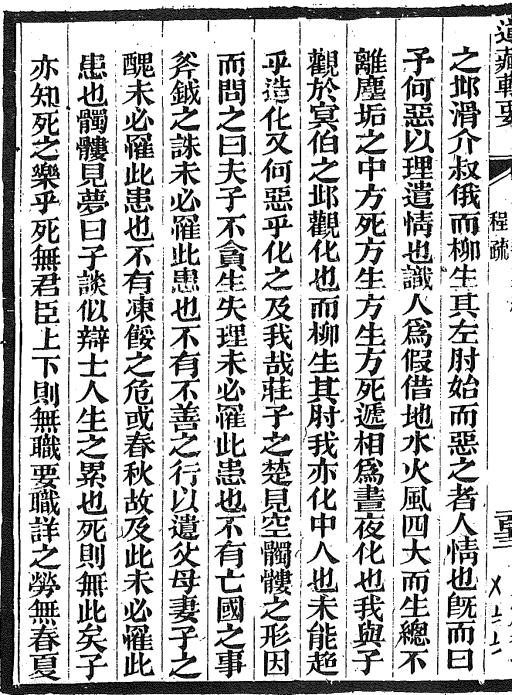 道藏輯要
程疏
之邱滑介叔俄而柳生其左肘始而惡之者人情也旣而曰
予何惡以理遣情也識人爲假借地水火風四大而生總不
離塵垢之中方死方生方生方死遞相爲晝夜化也我與子
觀於冥伯之邱觀化也而柳生其肘我亦化中人也未能超
乎造化又何惡乎化之及我哉莊子之楚見空髑髏之形因
而問之曰夫子不貪生失理未必罹此患也不有亡國之事
斧鉞之誅未必罹此患也不有不善之行以遺父母妻子之
醜未必罹此患也不有凍餒之危或春秋故及此未必罹此
患也髑髏見夢曰子談似辯士人生之累也死則無此矣子
亦知死之樂乎死無君臣上下則無職要職詳之勞無春夏